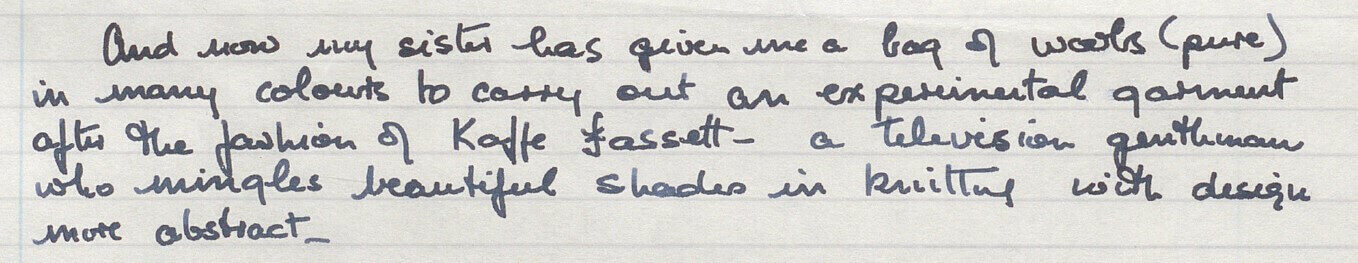 And now my sister has given me a bag of wools (pure)
in many colours to carry out an experimental garment
after the fashion of Kaffe Fassett - a television gentleman
who mingles beautiful shades in knitting with design
more abstract_